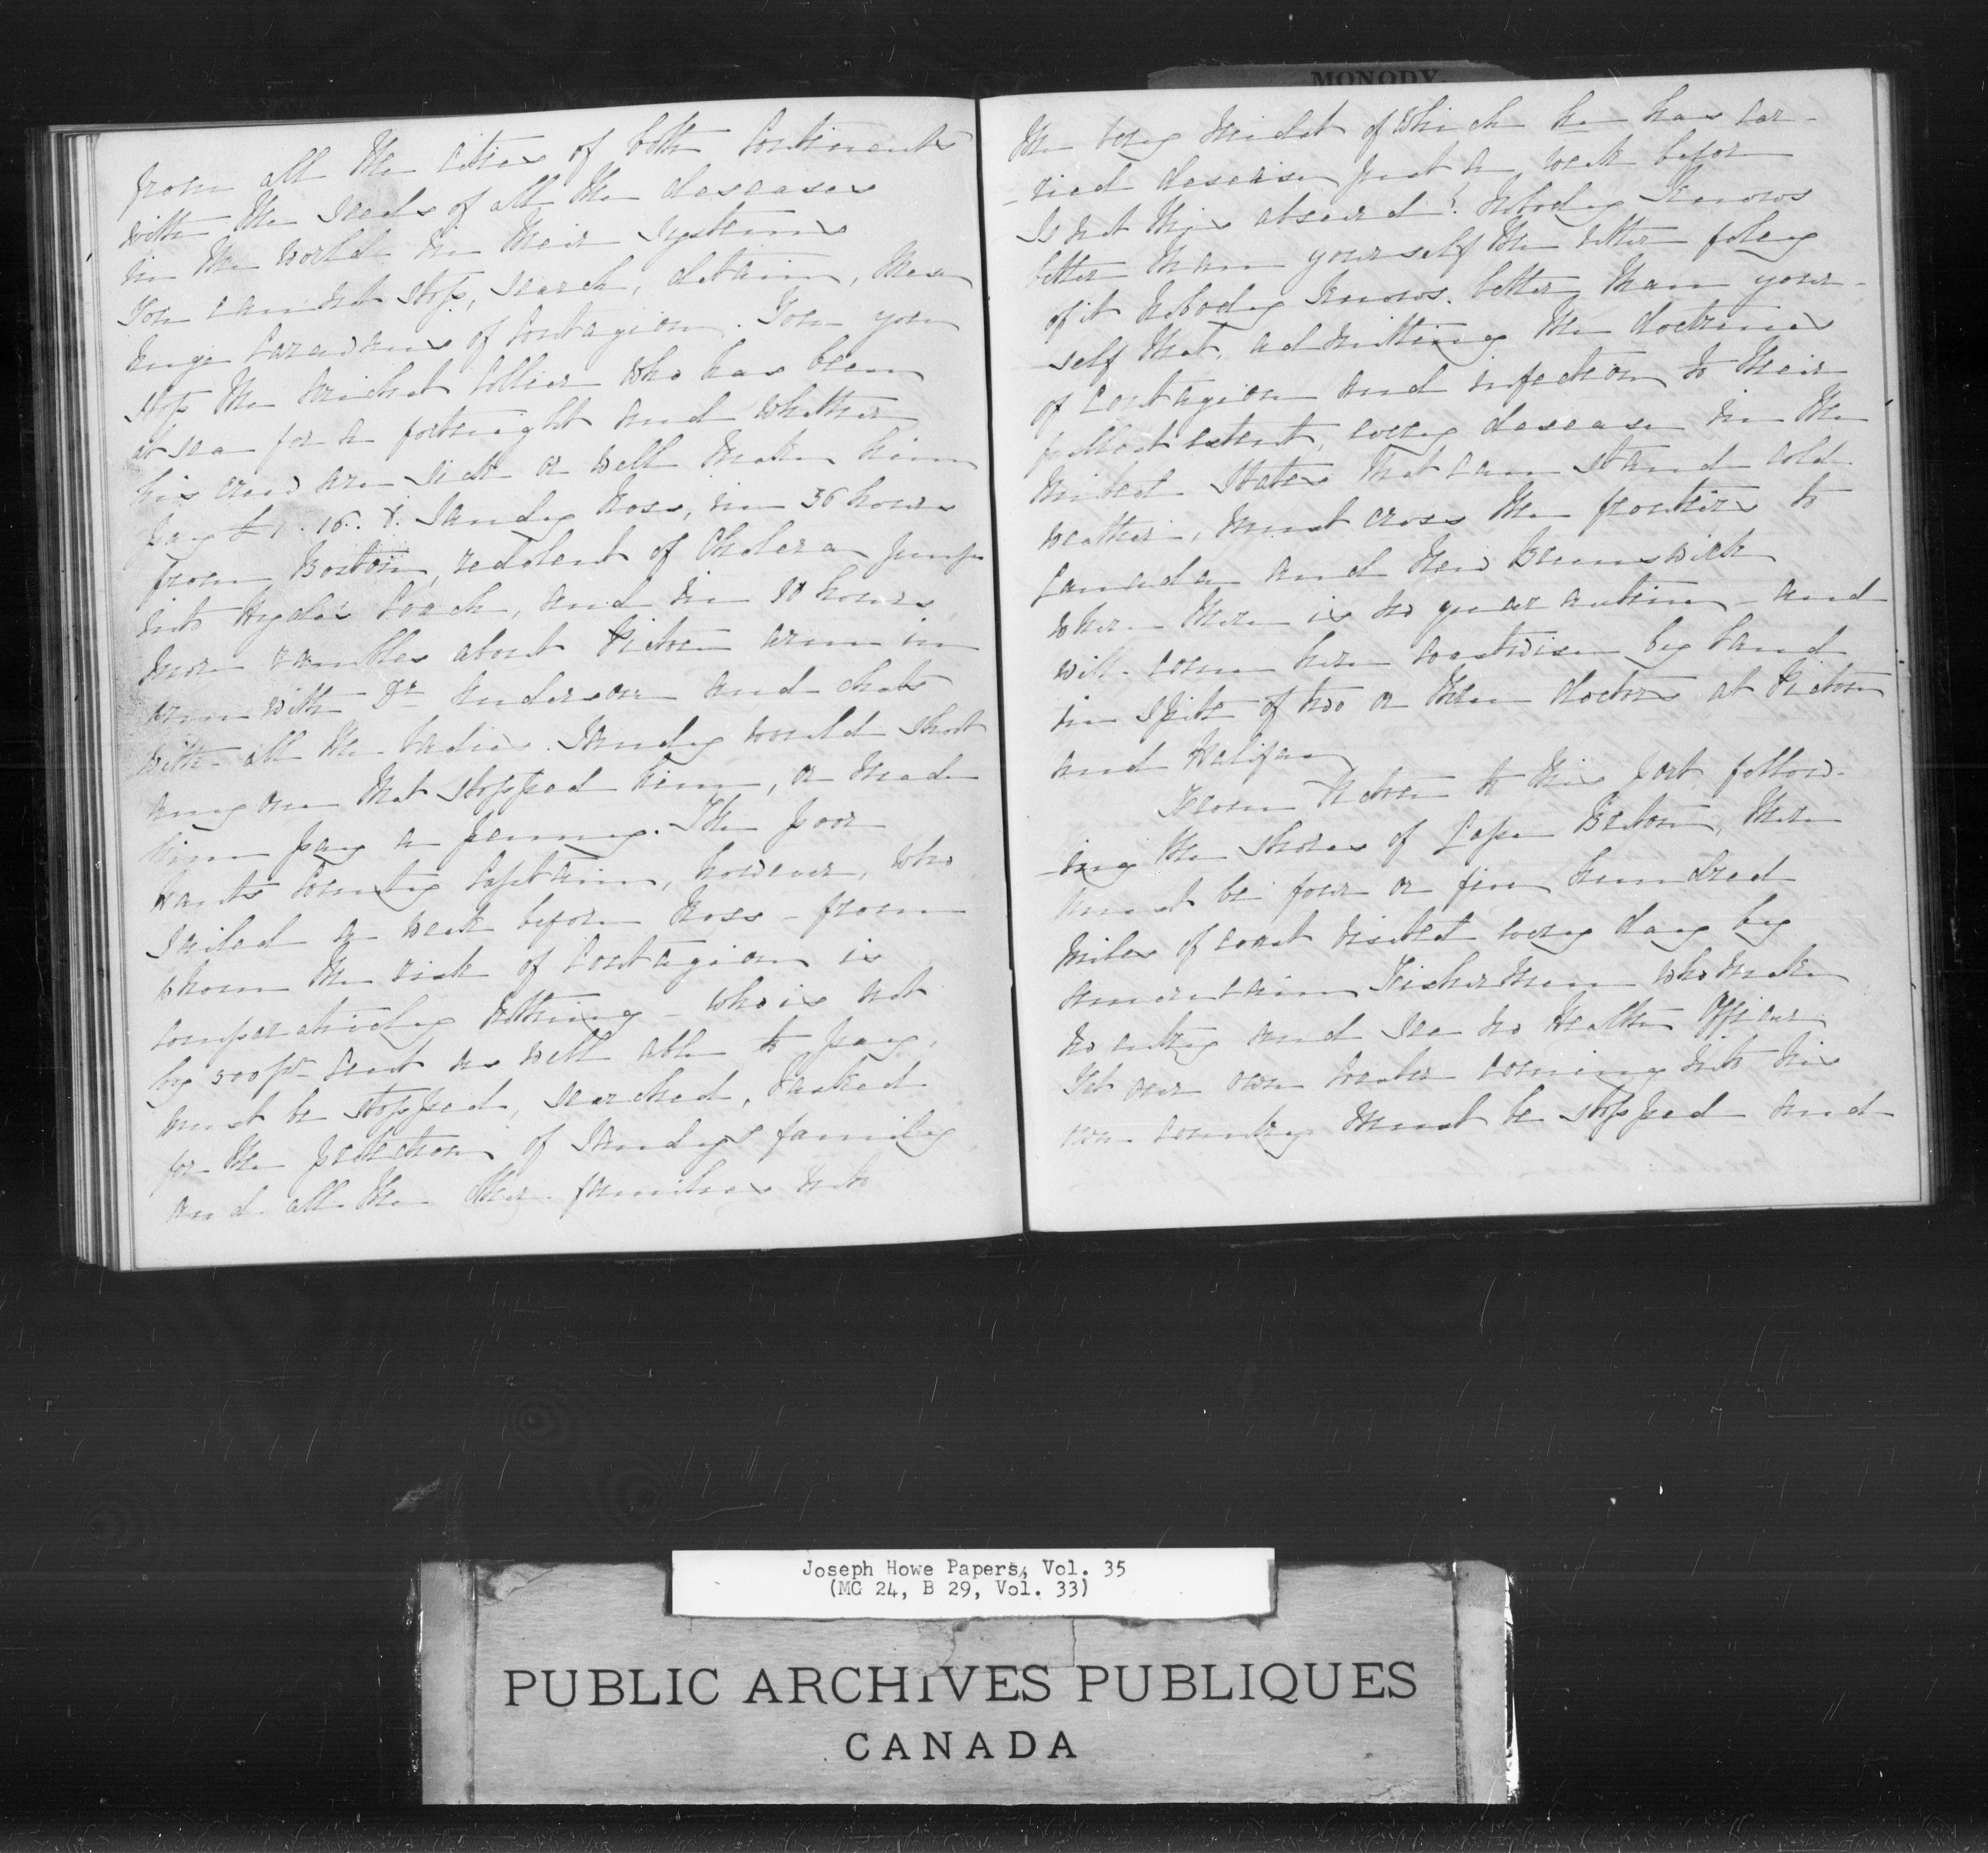 MONODY.
from all the cities of both Continents
with the seeds of all the deseases
in the world in their systems
You cannot stop, search, detain, these
huge Caravans of Contagion. Yon you
stop the Collier who has been
at sea for a fortnight and whether
his crew are sick or well make him
pay £1.16.8. Sandy Ross, in 36 hours
from Boston, redolent of Cholera jumps
into Hyde's Coach, and in 10 hours
more rambles about Pictou arm in
arm with Dr Anderson and chats
with all the Ladies. Sandy would shoot
any one that stopped him, or made
him pay a penny. The poor
Hants County Captain, however, who
sailed a week before Ross - from
whom the risk of Contagion is
comparatively nothing - who is not
by 500 pr Cent as well able to pay,
must be stopped, searched, tasked
for the protection of Sandy's family
and all the other families into
the very midst of which he has car-
-ried desease just a week before
Is not this absurd? Nobody knows
better than yourself the utter foley
of it Nobody knows better than your-
self that, admitting the doctrines
of Contagion and infection to their
fullest extent, every desease in the
United States that can stand cold
weather, must cross the frontier to
Canada and New Brunswick
where there is no quarantine - and
will come here coastwise by Land
in spite of two or three doctors at Pictou
and Halifax
From Pictou to this port follow-
-ing the shores of Cape Breton, there
must be four or five hundred
miles of coast visited every day by
American Fishermen who make
no entry and see no Health Officer
Yet our own coaster coming into his
own country must be stopped and
Joseph Howe Papers, Vol. 35
(MG 24, B 29, Vol. 33)
PUBLIC ARCHIVES PUBLIQUES
CANADA